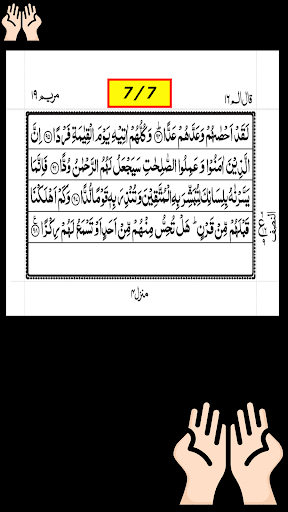 7/7
قال الم ١٦
مريم ١٩
لَقَدْ اَحْصٰىهُمْ وَعَدَّهُمْ عَدًّا ﴿٩٤﴾ وَكُلُّهُمْ اٰتِيْهِ يَوْمَ الْقِيٰمَةِ فَرْدًا ﴿٩٥﴾ اِنَّ
الَّذِيْنَ اٰمَنُوْا وَعَمِلُوا الصّٰلِحٰتِ سَيَجْعَلُ لَهُمُ الرَّحْمٰنُ وُدًّا ﴿٩٦﴾ فَاِنَّمَا
يَسَّرْنٰهُ بِلِسَانِكَ لِتُبَشِّرَ بِهِ الْمُتَّقِيْنَ وَتُنْذِرَ بِهٖ قَوْمًا لُّدًّا ﴿٩٧﴾ وَكَمْ اَهْلَكْنَا
قَبْلَهُمْ مِّنْ قَرْنٍ ؕ هَلْ تُحِسُّ مِنْهُمْ مِّنْ اَحَدٍ اَوْ تَسْمَعُ لَهُمْ رِكْزًا ﴿٩٨﴾
النصف
منزل ٤